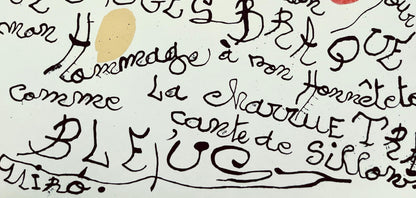 GES BRAQUE
mon Hommage à son Honnêtete
comme La charrue TRA
çante de Sillons
BLEUS
Miró.